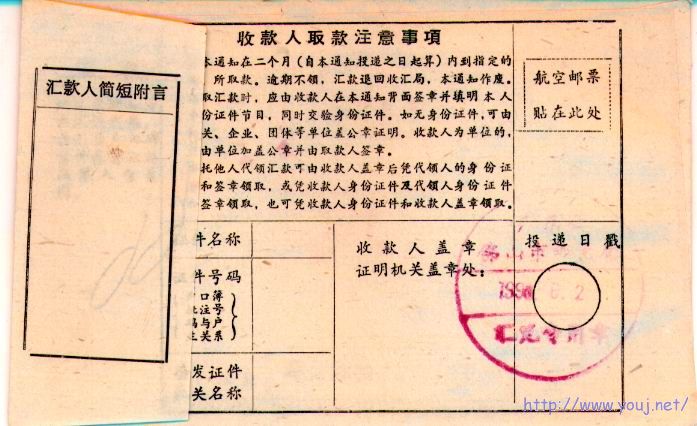 收款人取款注意事項
本通知在二个月(自本通知投递之日起算)内到指定的
所取款。逾期不领,汇款退回收汇局,本通知作废。
取汇款时,应由收款人在本通知背面签章并填明本人
份证件节目,同时交验身份证件。如无身份证件,可由
关、企业、团体等单位盖公章证明。收款人为单位的,
由单位加盖公章并由取款人签章。
托他人代领汇款可由收款人盖章后凭代领人的身份证
和签章领取,或凭收款人身份证件及代领人身份证件
签章领取,也可凭收款人身份证件和收款人盖章领取。
航空邮票
贴在此处
汇款人简短附言
件名称
件号码
口簿
注号
与户
关系
发证件
关名称
收款人盖章
证明机关盖章处:
投递日戳
http://www.youj.net/